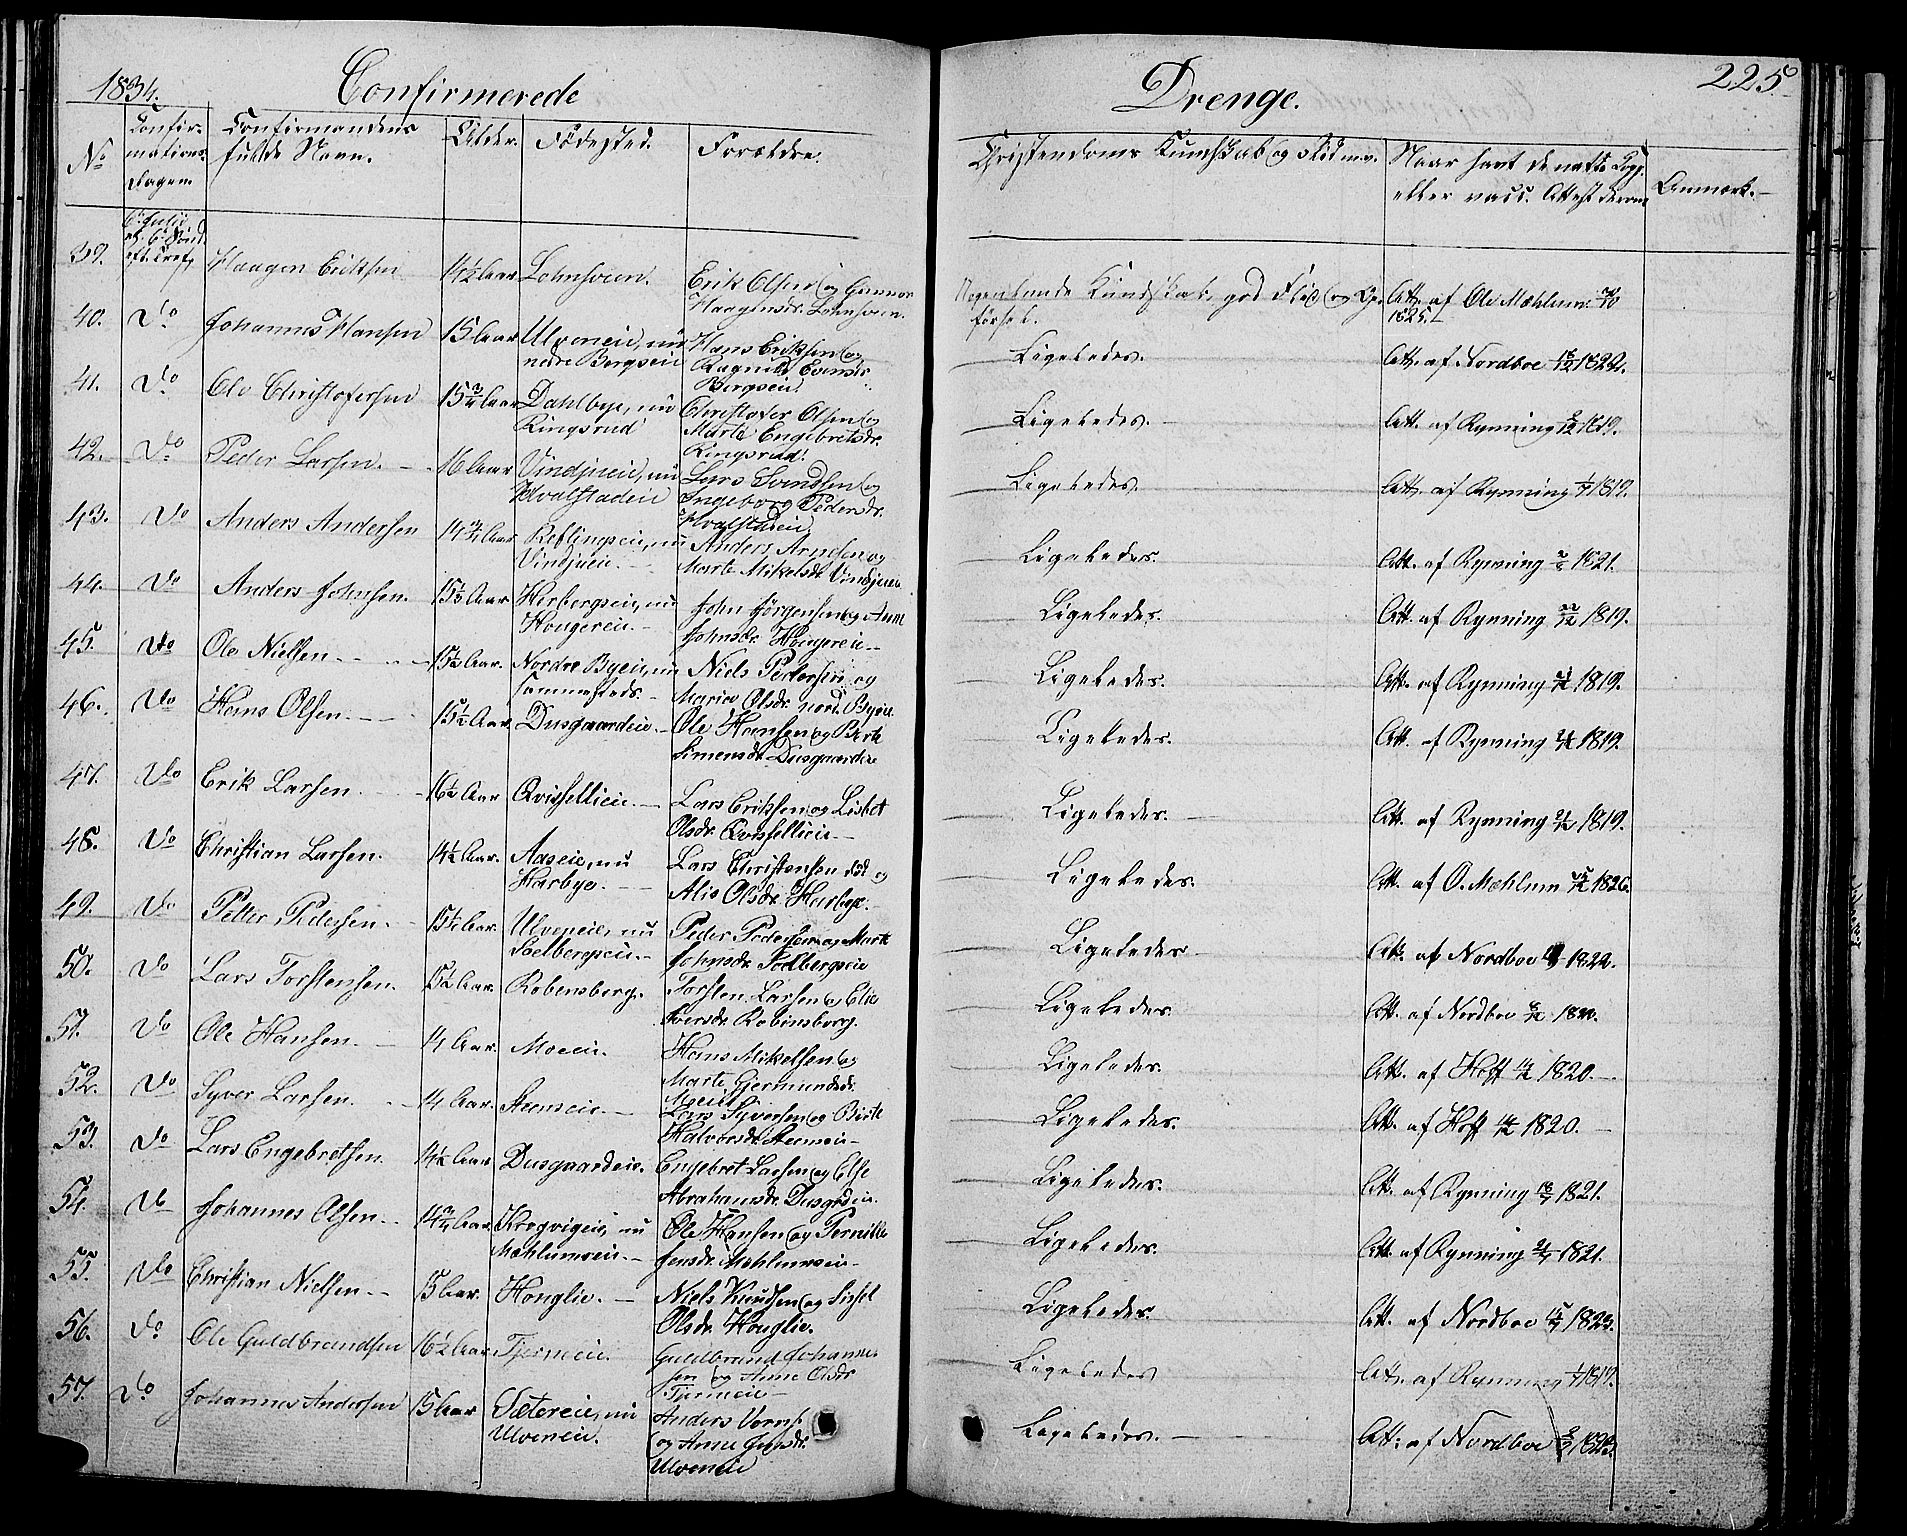 1834. Confirmerede
Drenge. 225
No Confir- Confirmandens Alder. Födested. Forældre.
mations- fulde Navn.
dagen.
Christendoms Kundskab og Flid m.v. Naar havt de natl. Kopp. Anmærk.
eller vacc. Attest derom
6 Julii
6 Sönd.
eft. Tref.
39. Haagen Eriksen 14½ Aar Lohnsveen. Erik Olsen og Gunnor
Haagensdr. Lohnsveen.
Nogenlunde Kundskab, god Flid og Op- Att. af Ole Mæhlum
førsel. 1825.
40. Do Johannes Hansen 15 Aar Ulveneie, nu Hans Eriksen og
nedre Bergseie Ragnild Evensdr.
Bergseie.
Ligeledes. Att. af Nordboe 1822.
41. Do Ole Christofersen 15¾ Aar Dahlbye, nu Christofer Olsen og
Ringsrud Marte Engebretsdr.
Ringsrud.
Ligeledes. Att. af Rynning 1819.
42. Do Peder Larsen. 16 Aar Vindjueie, nu Lars Svendsen og
Hvalstadeie Ingeborg Pedersdr.
Hvalstadeie.
Ligeledes. Att. af Rynning 1819.
43. Do Anders Andersen 14¾ Aar Reflingseie, nu Anders Arnesen og
Vindjueie. Marte Mikelsdr. Vindjueie
Ligeledes. Att. af Rynning 1821.
44. Do Anders Johnsen. 15½ Aar Herbergseie, nu John Jörgensen og Anne
Hougereie. Johnsdr. Hougereie
Ligeledes. Att. af Rynning 1819.
45. Do Ole Nielsen 15½ Aar. Nordre Byeie, nu Niels Pedersen og
sammesteds. Marie Olsdr. nord. Byeie
Ligeledes. Att. af Rynning 1819.
46. Do Hans Olsen. 15½ Aar. Dusgaardeie. Ole Hansen og Berte
Simensdr. Dusgaardeie
Ligeledes. Att. af Rynning 1819.
47. Do Erik Larsen. 16½ Aar Qvissellieie. Lars Eriksen og Lisbet
Olsdr. Qvissellieie
Ligeledes. Att. af Rynning 1819.
48. Do Christian Larsen. 14½ Aar. Aaseie, nu Lars Christensen död og
Harbye. Alis Olsdr. Harbye.
Ligeledes. Att. af O. Mæhlum 1826.
49. Do Petter Pedersen. 15½ Aar. Ulveneie, nu Peder Pedersen og Marte
Solbergseie. Johnsdr. Solbergseie
Ligeledes Att. af Nordboe 1822.
50. Do Lars Torstensen. 15½ Aar. Robensberg. Torsten Larsen og Elie
Iversdr. Robinsberg.
Ligeledes. Att. af Nordboe
51. Do Ole Hansen. 14 Aar. Moeeie. Hans Mikelsen og
Marte Gjermundsdr.
Moeeie
Ligeledes. Att. af Hoff 1820.
52. Do Syver Larsen. 14 Aar. Steenseie. Lars Syversen og Birte
Halvorsdr. Steenseie
Ligeledes. Att. af Hoff 1820.
53. Do Lars Engebretsen. 14½ Aar Dusgaardeie. Engebret Larsen og Else
Abrahamsdr. Dusgrdeie.
Ligeledes. Att. af Rynning 1821.
54. Do Johannes Olsen. 14¾ Aar. Krogvigeie, nu Ole Hansen og Pernille
Mæhlumseie. Jensdr. Mæhlumseie
Ligeledes. Att. af Rynning 1821.
55. Do Christian Nielsen. 15 Aar. Honglie. Niels Knudsen og Sissel
Olsdr. Honglie.
Ligeledes. Att. af Nordboe 1823.
56. Do Ole Guldbrandsen 16½ Aar Tjerneeie. Guldbrand Johanne-
sen og Anne Olsdr
Tjerneeie
Ligeledes Att. af Rynning 1819.
57. Do Johannes Andersen 15 Aar Sætereie, nu Anders
Ulveneie. og Anne Jensdr.
Ulveneie
Ligeledes. Att. af Nordboe 1823.